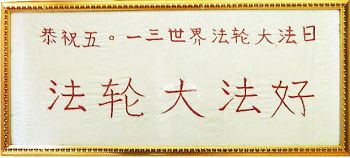 恭祝五。一三世界法轮大法日
法轮大法好